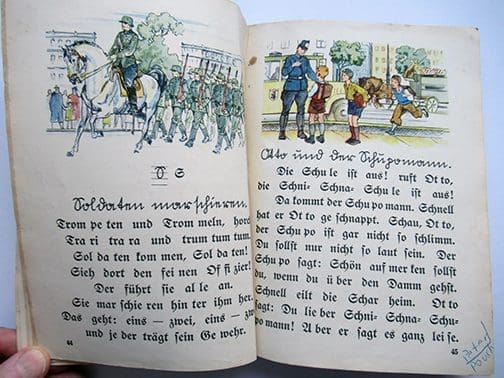 S
Soldaten marschieren.
Trom pe ten und Trom meln, horch
Tra ri tra ra und trum tum tum.
Sol da ten kom men, Sol da ten!
Sieh dort den fei nen Of fi zier!
Der führt sie al le an.
Sie mar schie ren hin ter ihm her.
Das geht: eins – zwei, eins – zwei,
und je der trägt sein Ge wehr.
44
Otto und der Schupomann.
Die Schu le ist aus! ruft Ot to,
die Schni- Schna- Schu le ist aus!
Da kommt der Schu po mann. Schnell
hat er Ot to ge schnappt. Schau, Ot to,
der Schu po ist gar nicht so schlimm.
Du sollst nur nicht so laut sein. Der
Schu po sagt: Schön auf mer ken sollst
du, wenn du ü ber den Damm gehst.
Schnell eilt die Schar heim. Ot to
sagt: Du lie ber Schni- Schna- Schu-
po mann! A ber er sagt es ganz lei se.
45